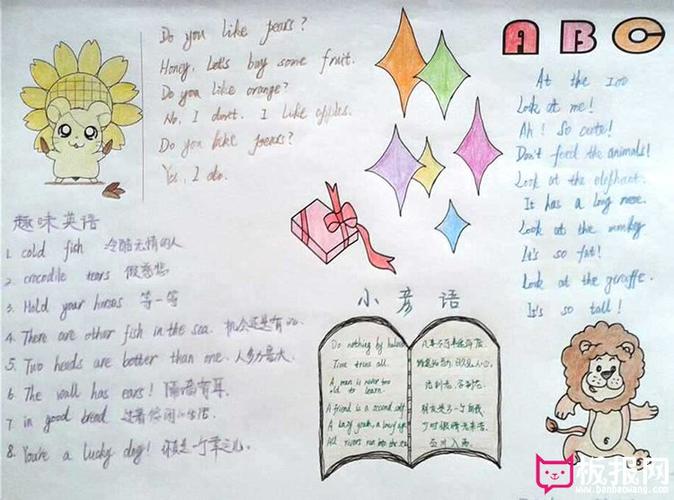 Do you like pears?
Honey, Let's buy some fruit.
Do you like orange?
No, I don't. I like apples.
Do you like pears?
Yes, I do.
趣味英语
1. cold fish 冷酷无情的人
2. crocodile tears 假慈悲
3. Hold your horses 等一等
4. There are other fish in the sea. 机会还是有的.
5. Two heads are better than one. 人多力量大
6. The wall has ears! 隔墙有耳.
7. in good bread 过着悠闲的生活
8. You're a lucky dog! 你真是一个幸运儿!
A B C
At the zoo
Look at me!
Ah! So cute!
Don't feed the animals!
Look at the elephant.
It has a long nose.
Look at the monkey
It's so fat!
Look at the giraffe.
It's so tall!
小彦语
Do nothing by halves
Time tries all.
A man is never too
old to learn.
A friend is a second self
A lazy youth, a lousy age
All rivers run into the sea
凡事不可半途而废
活到老,学到老.
朋友是另一个自我
百川入海.
板报网
www.banbaowang.com